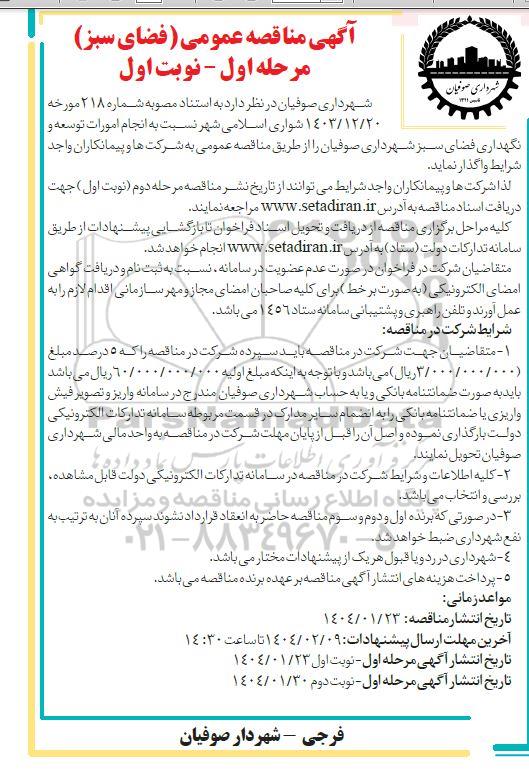 آگهی مناقصه عمومی (فضای سبز)
مرحله اول - نوبت اول
شهرداری صوفیان
شهرداری صوفیان در نظر دارد به استناد مصوبه شماره ۲۱۸ مورخه
۱۴۰۳/۱۲/۲۰ شورای اسلامی شهر نسبت به انجام امورات توسعه و
نگهداری فضای سبز شهرداری صوفیان را از طریق مناقصه عمومی به شرکت ها و پیمانکاران واجد
شرایط واگذار نماید.
لذا شرکت ها و پیمانکاران واجد شرایط می توانند از تاریخ نشر مناقصه مرحله دوم (نوبت اول) جهت
دریافت اسناد مناقصه به آدرس www.setadiran.ir مراجعه نمایند.
کلیه مراحل برگزاری مناقصه از دریافت و تحویل اسناد فراخوان تا بازگشایی پیشنهادات از طریق
سامانه تدارکات دولت (ستاد) به آدرس www.setadiran.ir انجام خواهد شد.
متقاضیان شرکت در فراخوان در صورت عدم عضویت در سامانه، نسبت به ثبت نام و دریافت گواهی
امضای الکترونیکی (به صورت بر خط) برای کلیه صاحبان امضای مجاز و مهر سازمانی اقدام لازم را به
عمل آورند و تلفن راهبری و پشتیبانی سامانه ستاد ۱۴۵۶ می باشد.
شرایط شرکت در مناقصه:
۱- متقاضیان جهت شرکت در مناقصه باید سپرده شرکت در مناقصه را که ۵ درصد مبلغ
(۳/۰۰۰/۰۰۰/۰۰۰ ریال) می باشد و با توجه به اینکه مبلغ اولیه ۶۰/۰۰۰/۰۰۰/۰۰۰ ریال می باشد
باید به صورت ضمانتنامه بانکی و یا به حساب شهرداری صوفیان مندرج در سامانه واریز و تصویر فیش
واریزی یا ضمانتنامه بانکی را به انضمام سایر مدارک در قسمت مربوطه سامانه تدارکات الکترونیکی
دولت بارگذاری نموده و اصل آن را قبل از پایان مهلت شرکت در مناقصه به واحد مالی شهرداری
صوفیان تحویل نمایند.
۲- کلیه اطلاعات و شرایط شرکت در مناقصه در سامانه تدارکات الکترونیکی دولت قابل مشاهده،
بررسی و انتخاب می باشد.
۳- در صورتی که برنده اول و دوم و سوم مناقصه حاضر به انعقاد قرارداد نشوند سپرده آنان به ترتیب به
نفع شهرداری ضبط خواهد شد.
۴- شهرداری در رد و یا قبول هر یک از پیشنهادات مختار می باشد.
۵- پرداخت هزینه های انتشار آگهی مناقصه بر عهده برنده مناقصه می باشد.
مواعد زمانی:
تاریخ انتشار مناقصه: ۱۴۰۴/۰۱/۲۳
آخرین مهلت ارسال پیشنهادات: ۱۴۰۴/۰۲/۰۹ تا ساعت ۱۴:۳۰
تاریخ انتشار آگهی مرحله اول - نوبت اول ۱۴۰۴/۰۱/۲۳
تاریخ انتشار آگهی مرحله اول - نوبت دوم ۱۴۰۴/۰۱/۳۰
فرجی - شهردار صوفیان
پایگاه اطلاع رسانی مناقصه و مزایده
۰۲۱-۸۸۳۴۹۶۷۰-۵